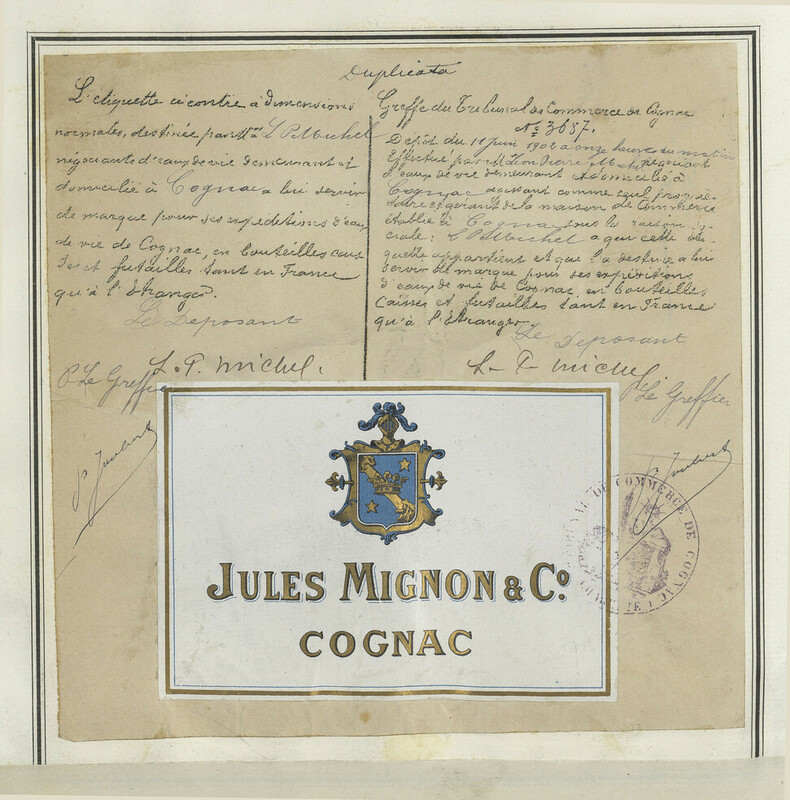 Duplicata
L'étiquette ci contre à dimensions
normales, destinée par Mr L P Michel
négociants d'eaux de vie demeurant et
domicilié à Cognac a lui servir
de marque pour ses expéditions d'eaux
de vie de Cognac, en bouteilles cais
ses et futailles tant en France
qu'à l'Etranger.
Le Deposant
L. P. Michel.
P. Le Greffier
Greffe du Tribunal de Commerce de Cognac
No 3687.
Dépôt du 11 juin 1902 à onze heures du matin
Effectué par M. Léon Pierre Michel négociant
d'eaux de vie demeurant et domicilié à
Cognac agissant comme seul proprié-
taire et gérant de la maison de Commerce
établie à Cognac sous la raison so-
ciale: L P Michel a qui cette éti-
quette appartient et qui l'a destinée a lui
servir de marque pour ses expéditions
d'eaux de vie de Cognac, en bouteilles
Caisses et futailles tant en France
qu'à l'Etranger
Le Deposant
L. P. Michel
P. Le Greffier
JULES MIGNON & Co
COGNAC
TRIBUNAL DE COMMERCE DE COGNAC